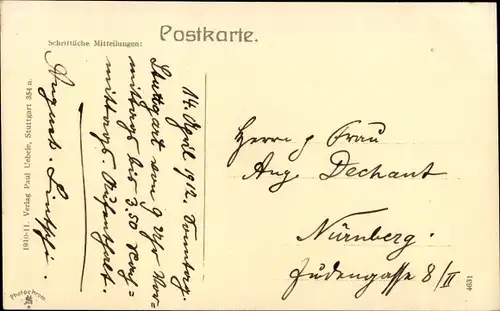 Postkarte.
Schriftliche Mitteilungen:
14. April 1912. Sonntag.
Stuttgart von 9 Uhr Vor=
mittags bis 3.50 Nach=
mittags Aufenthalt.
August.
Herrn & Frau
Aug. Dechant
Nürnberg.
Judengasse 8/II
1910-11. Verlag Paul Uebele, Stuttgart 354 n.
Photochrom
4631